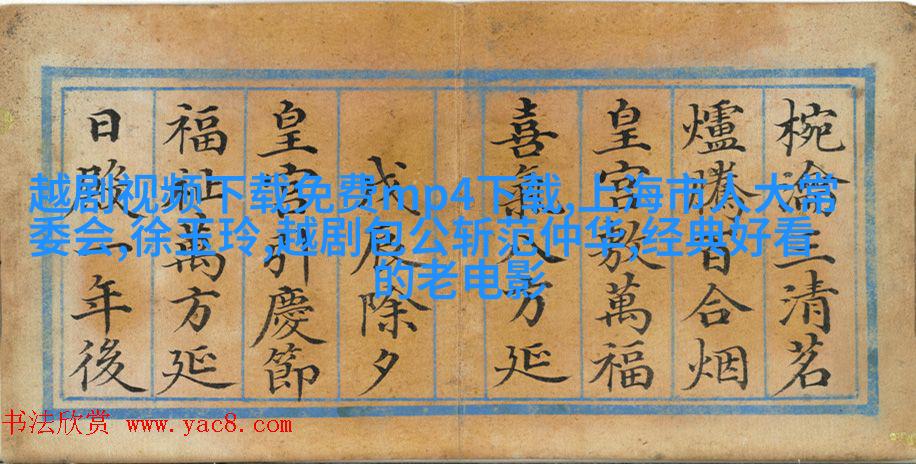 椀三清茗
爐騰百合烟
皇宮敷萬福
喜氣八方延
戊辰除夕
皇宮引慶節
福祉萬方延
日一年後
越剧视频下载免费mp4下载,上海市人大常
委会,徐玉玲,越剧包公斩范仲华,经典好看
的老电影
书法欣赏 www.yac8.com